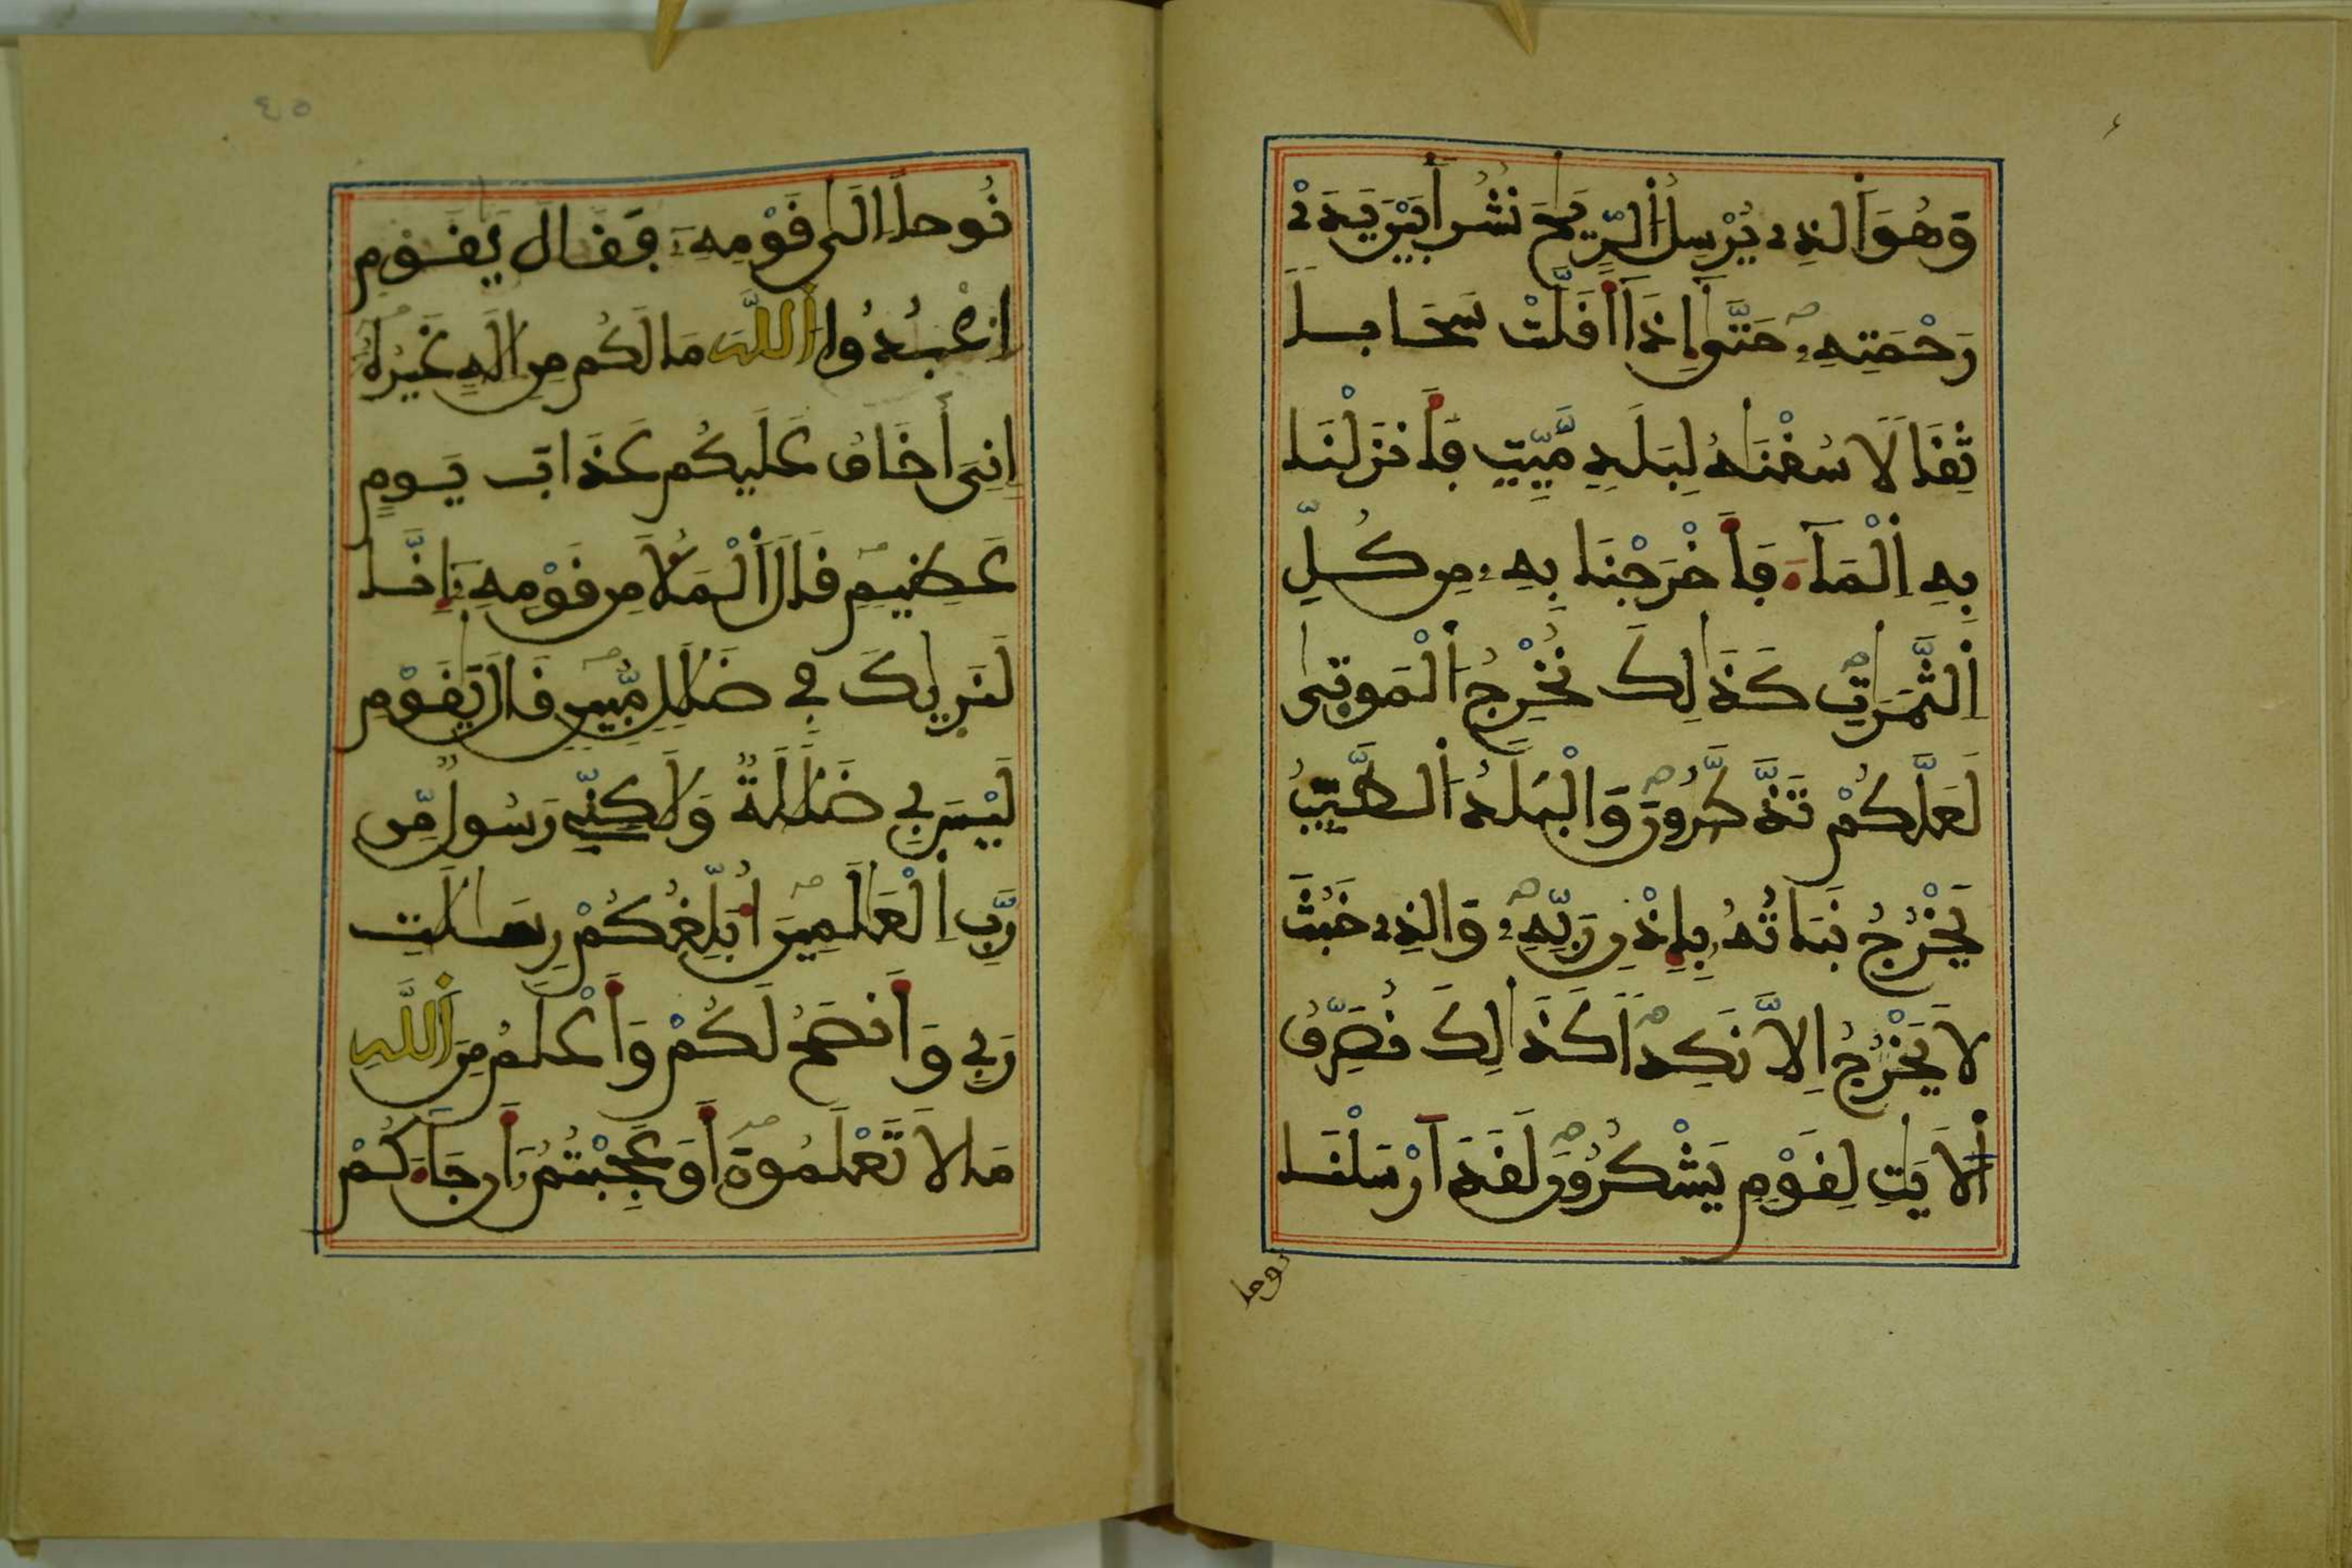 وَهُوَ اَ۬لذِے يُرْسِلُ اُ۬لرِّيَٰحَ نُشُراَۢ بَيْنَ يَدَےْ
رَحْمَتِهِۦ حَتَّىٰٓ إِذَآ أَقَلَّتْ سَحَاباٗ
ثِقَالاٗ سُقْنَٰهُ لِبَلَدٖ مَّيِّتٖ فَأَنزَلْنَا
بِهِ اِ۬لْمَآءَ فَأَخْرَجْنَا بِهِۦ مِن كُلِّ
اِ۬لثَّمَرَٰتِ كَذَٰلِكَ نُخْرِجُ اُ۬لْمَوْتَىٰ
لَعَلَّكُمْ تَذَّكَّرُونَ وَالْبَلَدُ اُ۬لطَّيِّبُ
يَخْرُجُ نَبَاتُهُۥ بِإِذْنِ رَبِّهِۦ وَالذِے خَبُثَ
لَا يَخْرُجُ إِلَّا نَكِداٗ كَذَٰلِكَ نُصَرِّفُ
اُ۬لَايَٰتِ لِقَوْمٖ يَشْكُرُونَ لَقَدَ اَرْسَلْنَا
نوحا
نُوحاً اِلَىٰ قَوْمِهِۦ فَقَالَ يَٰقَوْمِ
اِ۟عْبُدُواْ اُ۬للَّهَ مَا لَكُم مِّنِ اِلَٰهٍ غَيْرُهُۥ
إِنِّيَ أَخَافُ عَلَيْكُمْ عَذَابَ يَوْمٍ
عَظِيمٖ قَالَ اَ۬لْمَلَأُ مِن قَوْمِهِۦٓ إِنَّا
لَنَر۪يٰكَ فِے ضَلَٰلٖ مُّبِينٖ قَالَ يَٰقَوْمِ
لَيْسَ بِے ضَلَٰلَةٞ وَلَٰكِنِّے رَسُولٞ مِّن
رَّبِّ اِ۬لْعَٰلَمِينَ أُبَلِّغُكُمْ رِسَٰلَٰتِ
رَبِّے وَأَنصَحُ لَكُمْ وَأَعْلَمُ مِنَ اَ۬للَّهِ
مَا لَا تَعْلَمُونَ أَوَعَجِبْتُمُۥٓ أَن جَآءَكُمْ